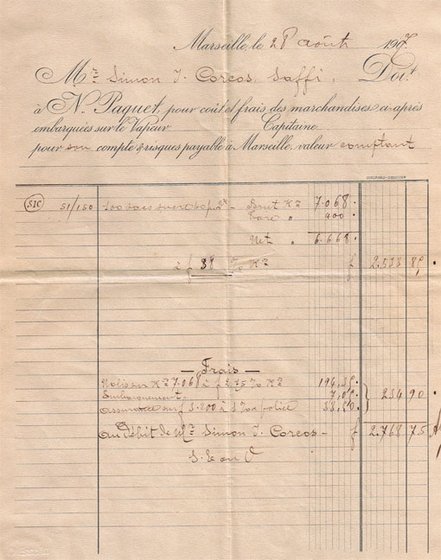 Marseille, le 28 août 1907
Mr Simon J. Corcos, Saffi. Doit
à N. Paquet, pour coût et frais des marchandises ci-après
embarquées sur le Vapeur Capitaine
pour son compte & risques payable à Marseille, valeur comptant
SJC 51/150 100 Brut Ks 7.068
Tare " 400
Net " 6.668
à f 38 % Ks f 2.533 85
— Frais —
Nolis sur Ks 7.068 à f 2.75 % Ks 194.35
Embarquement 7.05
assurance sur f 3.200 à police 33.50 234 90
au Débit de Mr Simon J. Corcos f 2.768 75
S. E. ou O.